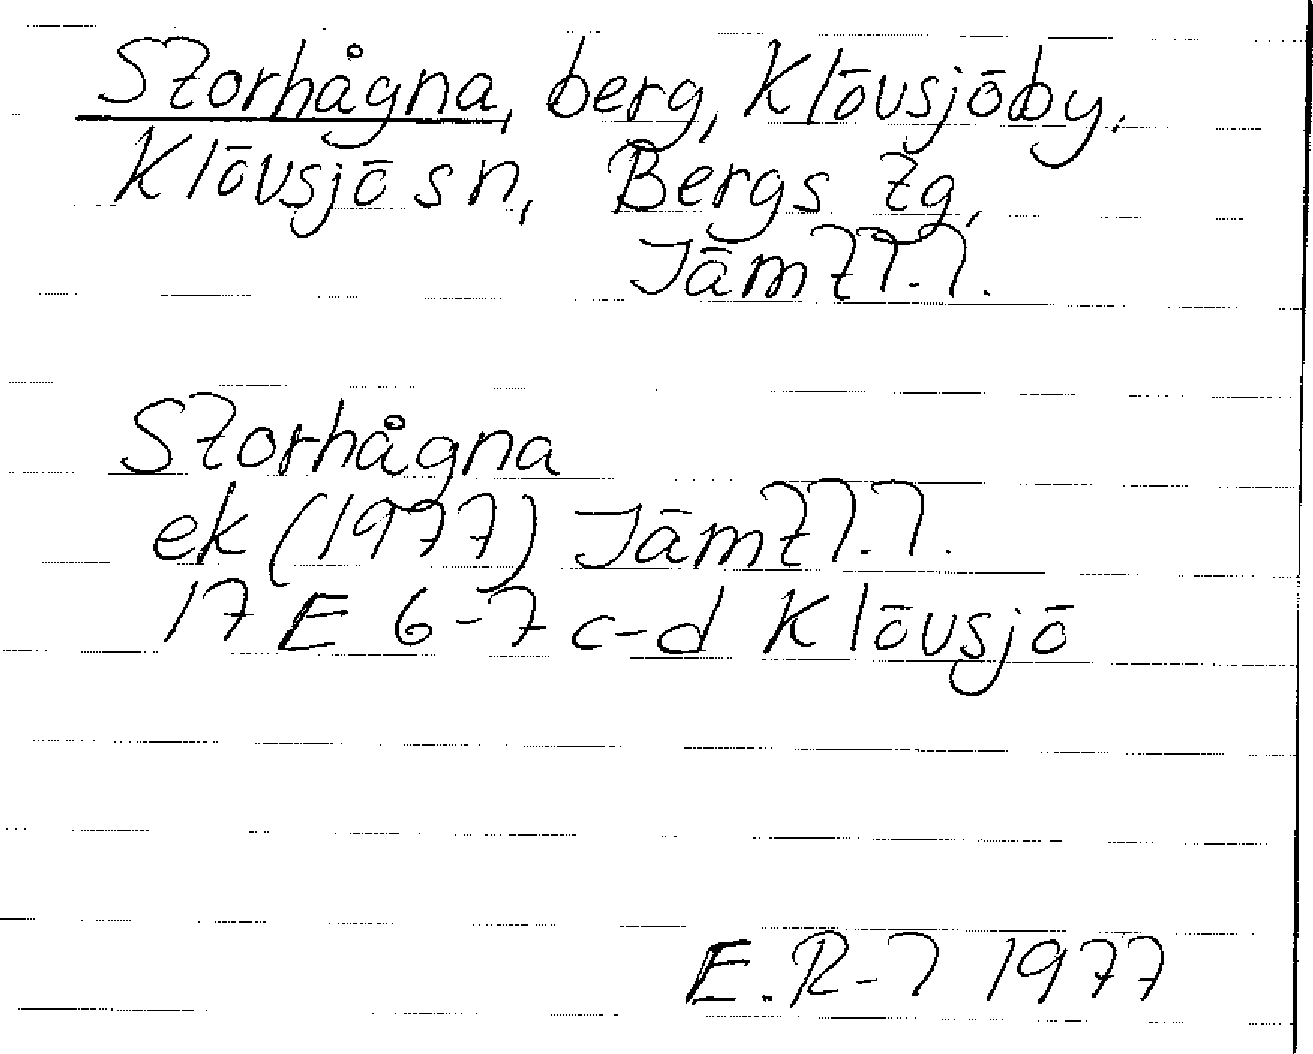 Storhågna, berg, Klövsjö by,
Klövsjö sn, Bergs tg,
Jämtl.l.
Storhågna
ek (1977) Jämtl.l.
17 E 6-7 c-d Klövsjö
E.R-l 1977